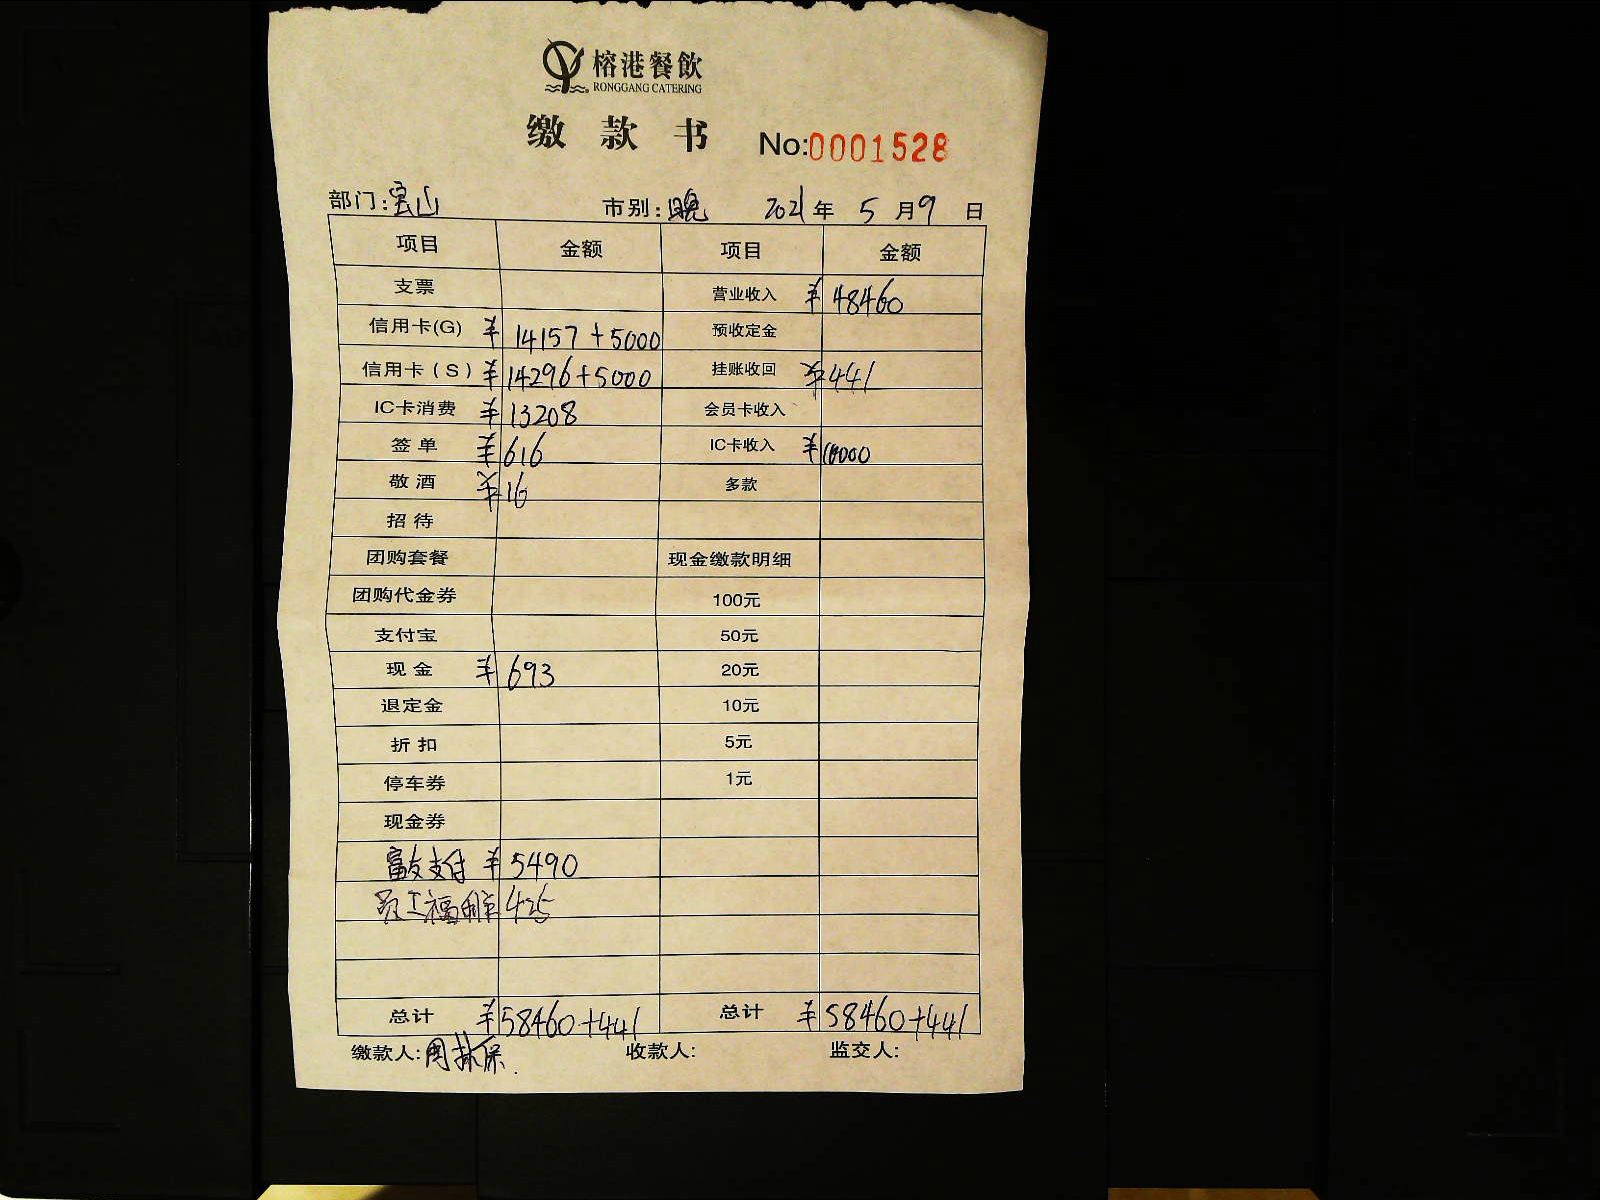 榕港餐飲
RONGGANG CATERING
缴款书 No:0001528
部门:宝山 市别:晚 2021年5月9日
项目 金额 项目 金额
支票 营业收入 ¥48460
信用卡(G) ¥14157+5000 预收定金
信用卡(S) ¥14296+5000 挂账收回 ¥441
IC卡消费 ¥13208 会员卡收入
签单 ¥616 IC卡收入 ¥10000
敬酒 ¥16 多款
招待
团购套餐 现金缴款明细
团购代金券 100元
支付宝 50元
现金 ¥693 20元
退定金 10元
折扣 5元
停车券 1元
现金券
富友支付 ¥5490
员工福利卡 425
总计 ¥58460+441 总计 ¥58460+441
缴款人:周林保. 收款人: 监交人: